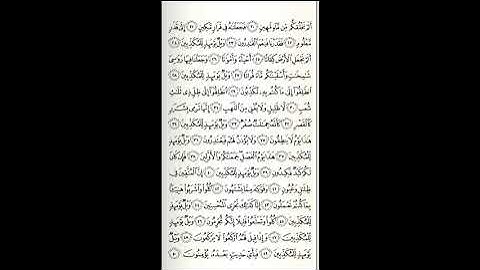 أَلَمْ نَخْلُقكُّم مِّن مَّآءٍ مَّهِينٍ ٢٠ فَجَعَلْنَٰهُ فِى قَرَارٍ مَّكِينٍ ٢١ إِلَىٰ قَدَرٍ
مَّعْلُومٍ ٢٢ فَقَدَرْنَا فَنِعْمَ ٱلْقَٰدِرُونَ ٢٣ وَيْلٌ يَوْمَئِذٍ لِّلْمُكَذِّبِينَ ٢٤
أَلَمْ نَجْعَلِ ٱلْأَرْضَ كِفَاتًا ٢٥ أَحْيَآءً وَأَمْوَٰتًا ٢٦ وَجَعَلْنَا فِيهَا رَوَٰسِىَ
شَٰمِخَٰتٍ وَأَسْقَيْنَٰكُم مَّآءً فُرَاتًا ٢٧ وَيْلٌ يَوْمَئِذٍ لِّلْمُكَذِّبِينَ ٢٨
ٱنطَلِقُوٓا۟ إِلَىٰ مَا كُنتُم بِهِۦ تُكَذِّبُونَ ٢٩ ٱنطَلِقُوٓا۟ إِلَىٰ ظِلٍّ ذِى ثَلَٰثِ
شُعَبٍ ٣٠ لَّا ظَلِيلٍ وَلَا يُغْنِى مِنَ ٱللَّهَبِ ٣١ إِنَّهَا تَرْمِى بِشَرَرٍ
كَٱلْقَصْرِ ٣٢ كَأَنَّهُۥ جِمَٰلَتٌ صُفْرٌ ٣٣ وَيْلٌ يَوْمَئِذٍ لِّلْمُكَذِّبِينَ ٣٤
هَٰذَا يَوْمُ لَا يَنطِقُونَ ٣٥ وَلَا يُؤْذَنُ لَهُمْ فَيَعْتَذِرُونَ ٣٦ وَيْلٌ يَوْمَئِذٍ
لِّلْمُكَذِّبِينَ ٣٧ هَٰذَا يَوْمُ ٱلْفَصْلِ جَمَعْنَٰكُمْ وَٱلْأَوَّلِينَ ٣٨ فَإِن كَانَ
لَكُمْ كَيْدٌ فَكِيدُونِ ٣٩ وَيْلٌ يَوْمَئِذٍ لِّلْمُكَذِّبِينَ ٤٠ إِنَّ ٱلْمُتَّقِينَ فِى
ظِلَٰلٍ وَعُيُونٍ ٤١ وَفَوَٰكِهَ مِمَّا يَشْتَهُونَ ٤٢ كُلُوا۟ وَٱشْرَبُوا۟ هَنِيٓـًٔۢا
بِمَا كُنتُمْ تَعْمَلُونَ ٤٣ إِنَّا كَذَٰلِكَ نَجْزِى ٱلْمُحْسِنِينَ ٤٤ وَيْلٌ يَوْمَئِذٍ
لِّلْمُكَذِّبِينَ ٤٥ كُلُوا۟ وَتَمَتَّعُوا۟ قَلِيلًا إِنَّكُم مُّجْرِمُونَ ٤٦ وَيْلٌ يَوْمَئِذٍ
لِّلْمُكَذِّبِينَ ٤٧ وَإِذَا قِيلَ لَهُمُ ٱرْكَعُوا۟ لَا يَرْكَعُونَ ٤٨ وَيْلٌ
يَوْمَئِذٍ لِّلْمُكَذِّبِينَ ٤٩ فَبِأَىِّ حَدِيثٍۭ بَعْدَهُۥ يُؤْمِنُونَ ٥٠